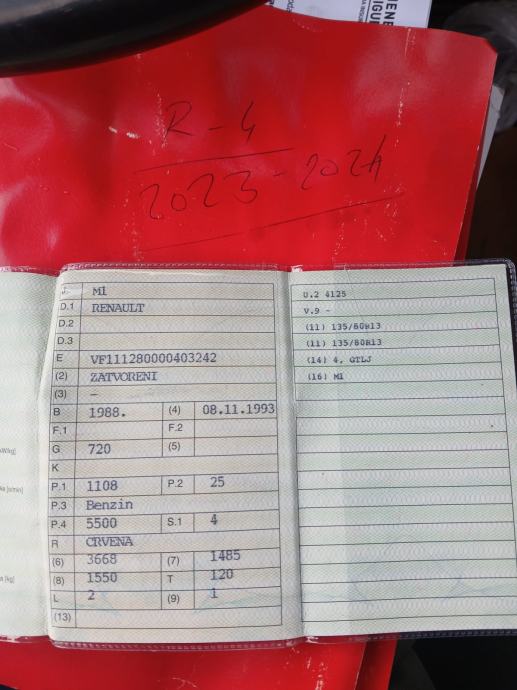 R-4
2023-2024
J M1
D.1 RENAULT
D.2
D.3
E VF111280000403242
(2) ZATVORENI
(3) -
B 1988. (4) 08.11.1993
F.1 F.2
G 720 (5)
K
P.1 1108 P.2 25
P.3 Benzin
P.4 5500 S.1 4
R CRVENA
(6) 3668 (7) 1485
(8) 1550 T 120
L 2 (9) 1
(13)
U.2 4125
V.9 -
(11) 135/80R13
(11) 135/80R13
(14) 4, GTLJ
(16) M1